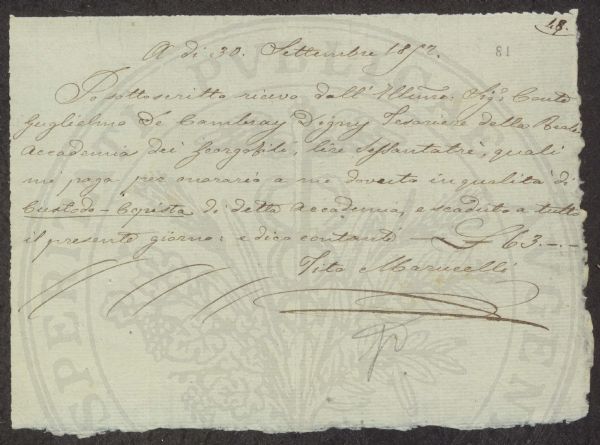 18.
A dì 30. Settembre 1857.
18
Io sottoscritto ricevo dall' Illmo. Sig. Conte
Guglielmo De Cambray Digny Tesoriere della Reale
Accademia dei Georgofili, lire sessantatrè, quali
mi paga per onorario a me dovuto in qualità di
Custode-Copista di detta Accademia, e scaduto a tutto
il presente giorno: e dico contanti — £ 63.-.-
Tito Marucelli